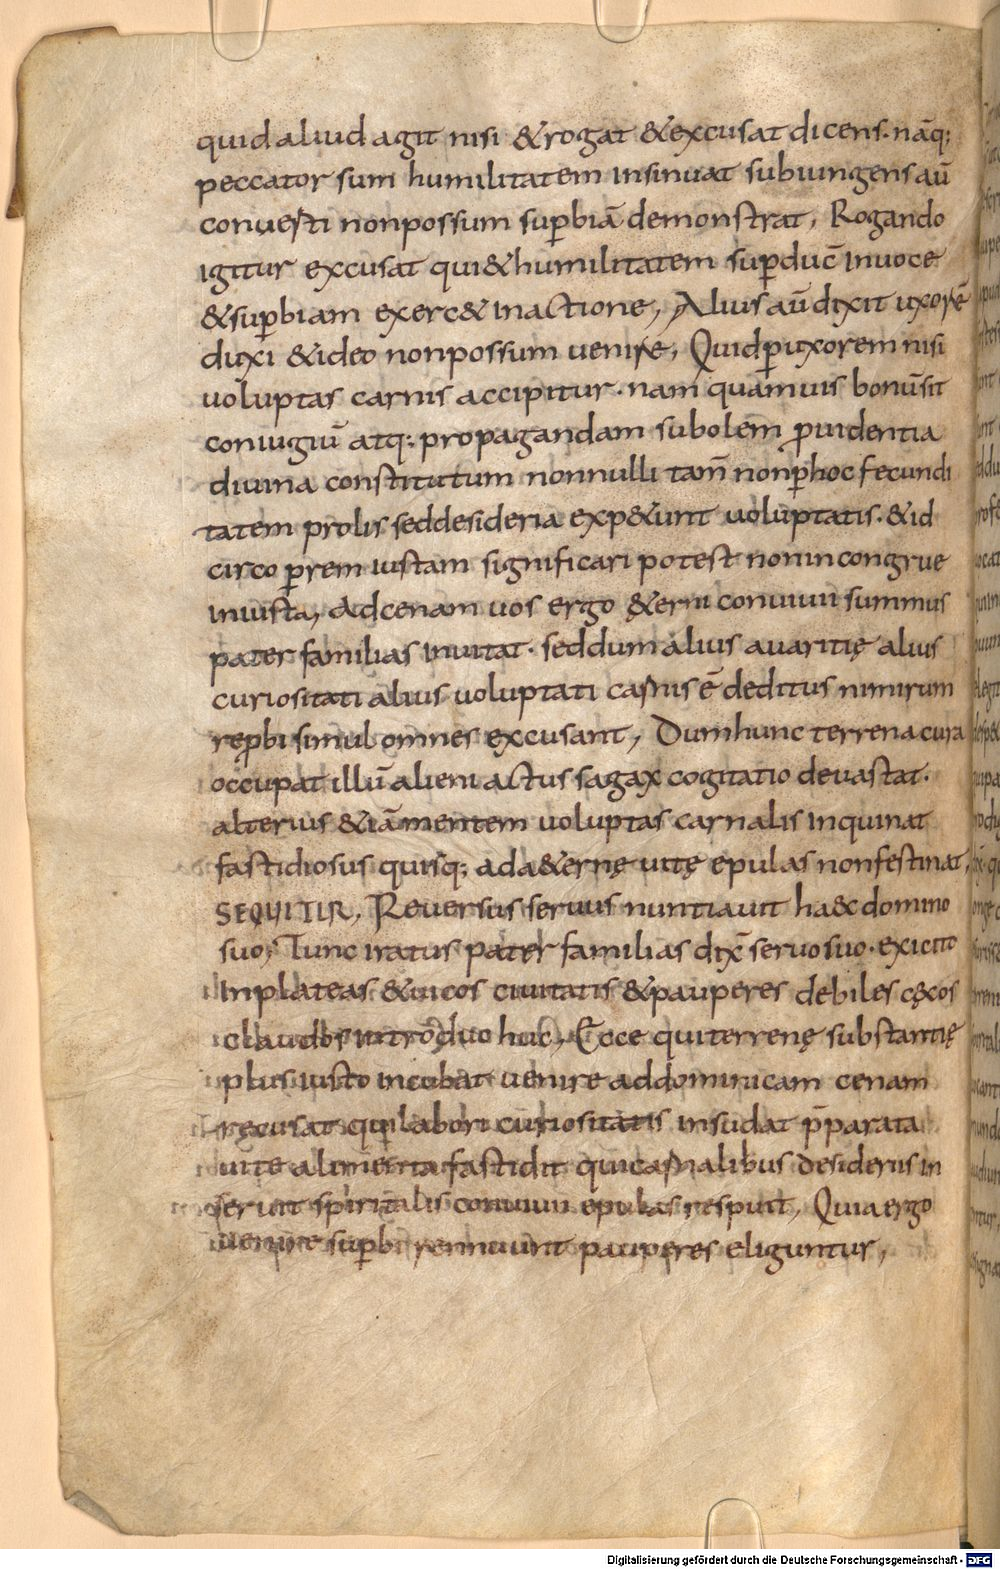 quid aliud agit nisi & rogat & excusat dicens. nāq;
peccator sum humilitatem insinuat subiungens aū
conuerti non possum sup̄biā demonstrat, Rogando
igitur excusat qui & humilitatem sup̄duc̄ in uoce
& sup̄biam exerc& in actione, Alius aū dixit uxorē
duxi & ideo non possum uenire, Quid p̄ uxorem nisi
uoluptas carnis accipitur. nam quamuis bonū sit
coniugiū atq; propagandam subolem p̄uidentia
diuina constitutum nonnulli tam̄ non p̄ hoc fecundi
tatem prolis sed desideria exp&unt uoluptatis. & id
circo p̄ rem iustam significari potest non incongrue
iniusta, Ad cenam uos ergo &erni conuiuii summus
pater familias inuitat. sed dum alius auaritię alius
curiositati alius uoluptati carnis ē deditus nimirum
rep̄bi simul omnes excusant, Dum hunc terrena cura
occupat illū alieni actus sagax cogitatio deuastat.
alterius &iā mentem uoluptas carnalis inquinat
fastidiosus quisq; ad a&ernę uitę epulas non festinat,
SEQUITUR, Reuersus seruus nuntiauit haec domino
suo, Tunc iratus pater familias dix̄ seruo suo. exi cito
In plateas & uicos ciuitatis & pauperes debiles cęcos
claudos introduc huc, Ecce qui terrenę substantię
plus iusto incubat uenire ad dominicam cenam
recusat qui labori curiositatis insudat p̄parata
uite alimenta fastidit qui carnalibus desideriis in
seruit spiritalis conuiuii epulas respuit, Quia ergo
uenire sup̄bi rennuunt pauperes eliguntur,
Digitalisierung gefördert durch die Deutsche Forschungsgemeinschaft - DFG